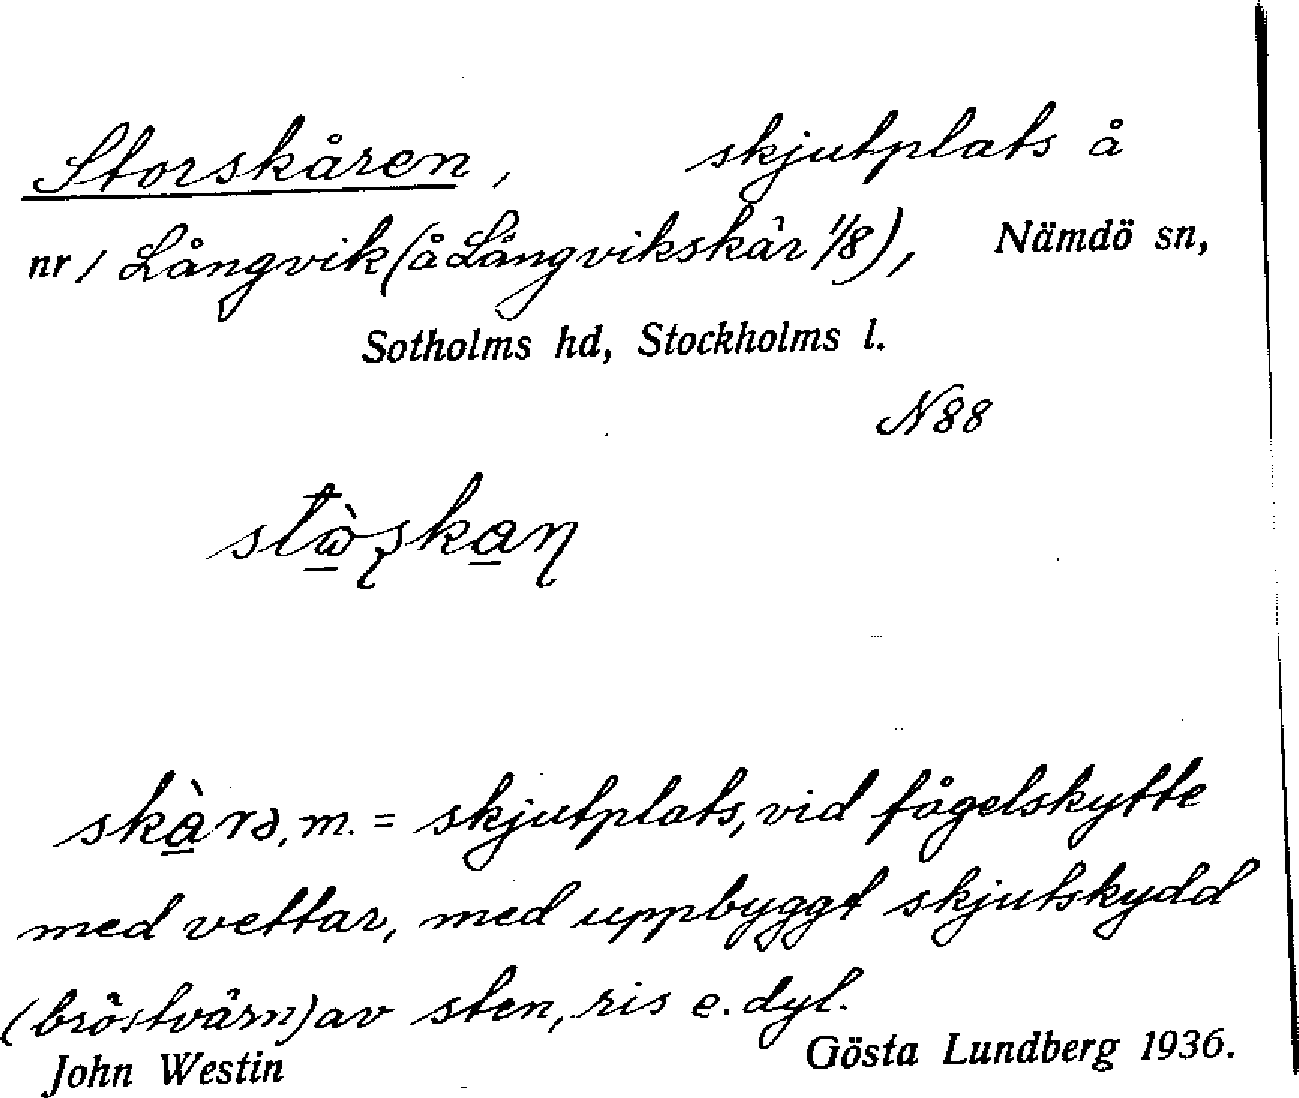 Storskåren, skjutplats å
nr 1 Långvik (å Långvikskär 1/8), Nämdö sn,
Sotholms hd, Stockholms l.
N88
skàrə, m. = skjutplats, vid fågelskytte
med vettar, med uppbyggt skjutskydd
(bröstvärn) av sten, ris e. dyl.
John Westin Gösta Lundberg 1936.